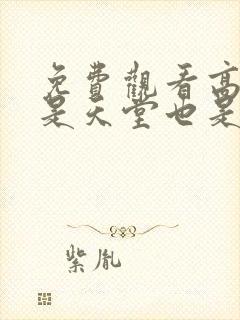 免費觀看高
是天堂也是
紫胤